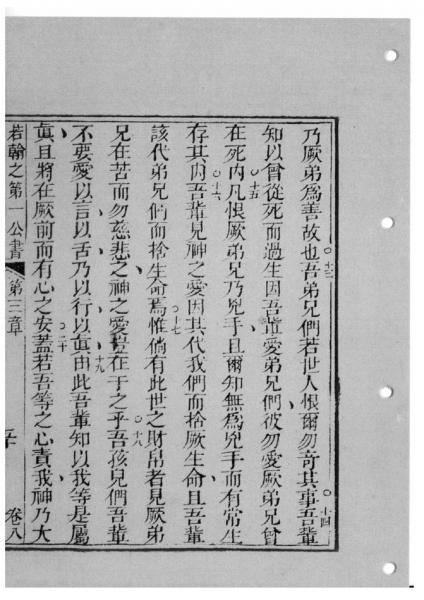 乃厥弟為善故也○十三吾弟兄們若世人恨爾勿奇其事○十四吾輩
知以曾從死而過生因吾輩愛弟兄們彼勿愛厥弟兄曾
在死內○十五凡恨厥弟兄乃兇手且爾知無為兇手而有常生
存其內○十六吾輩見神之愛因其代我們而捨厥生命且吾輩
該代弟兄們而捨生命焉○十七惟倘有此世之財帛者見厥弟
兄在苦而勿慈悲之神之愛豈在于之乎○十八吾孩兒們吾輩
不要愛以言以舌乃以行以眞十九由此吾輩知以我等是屬
眞且將在厥前而有心之安○二十蓋若吾等之心責我神乃大
若翰之第一公書 第三章 卷八